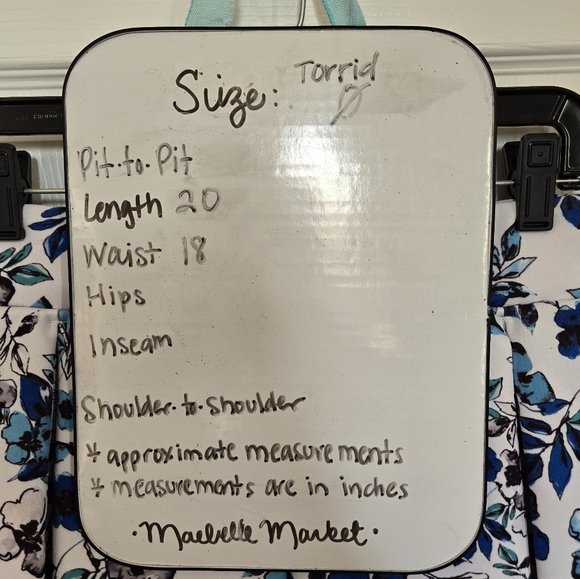 Size: Torrid
0
Pit-to-Pit
Length 20
Waist 18
Hips
Inseam
Shoulder-to-Shoulder
* approximate measurements
* measurements are in inches
·Maebelle Market·